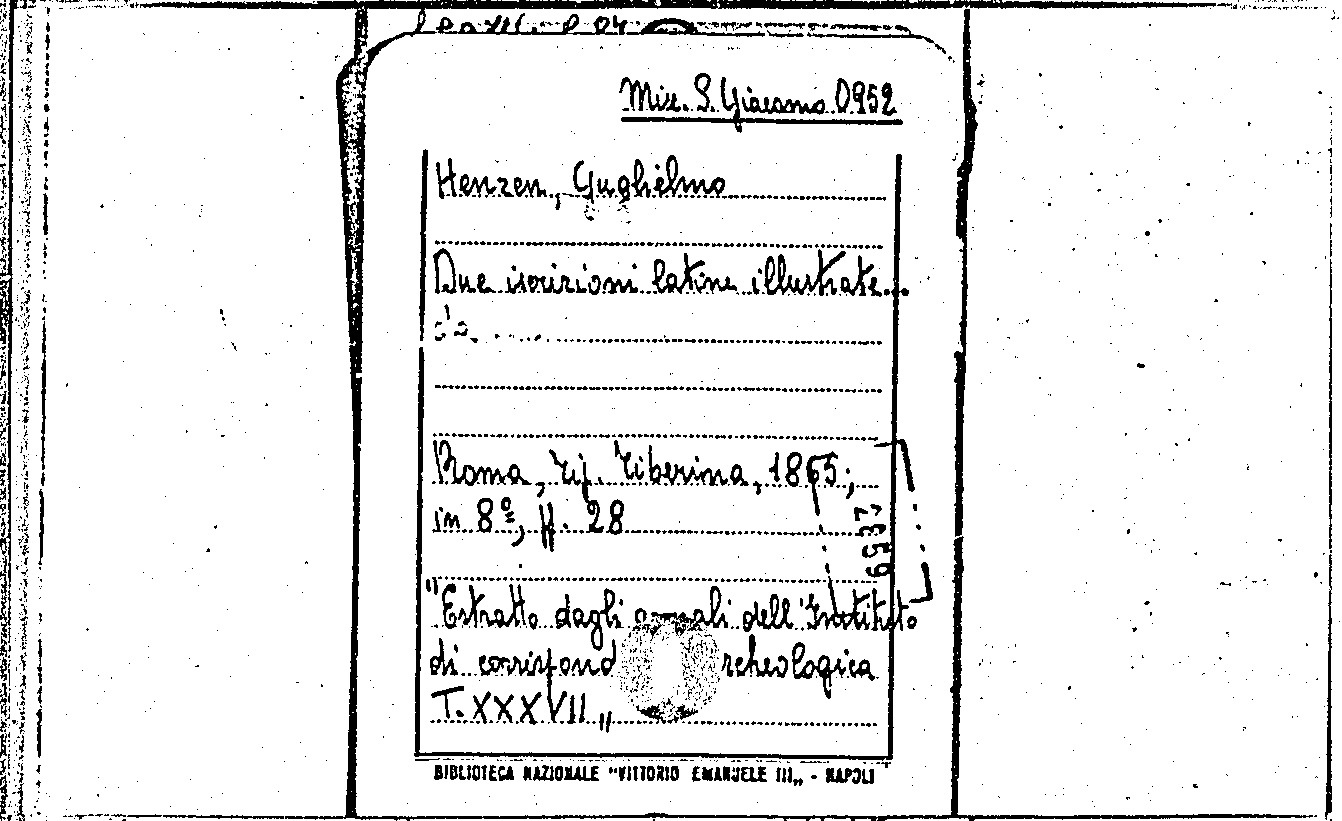 Misc. S. Giacomo 0952
Henzen, Guglielmo
Due iscrizioni latine illustrate...
da
Roma, Tip. Tiberina, 1865;
in 8º, pp. 28
"Estratto dagli annali dell'Instituto
di corrispond rcheologica
T. XXXVII„
BIBLIOTECA NAZIONALE "VITTORIO EMANUELE III„ - NAPOLI